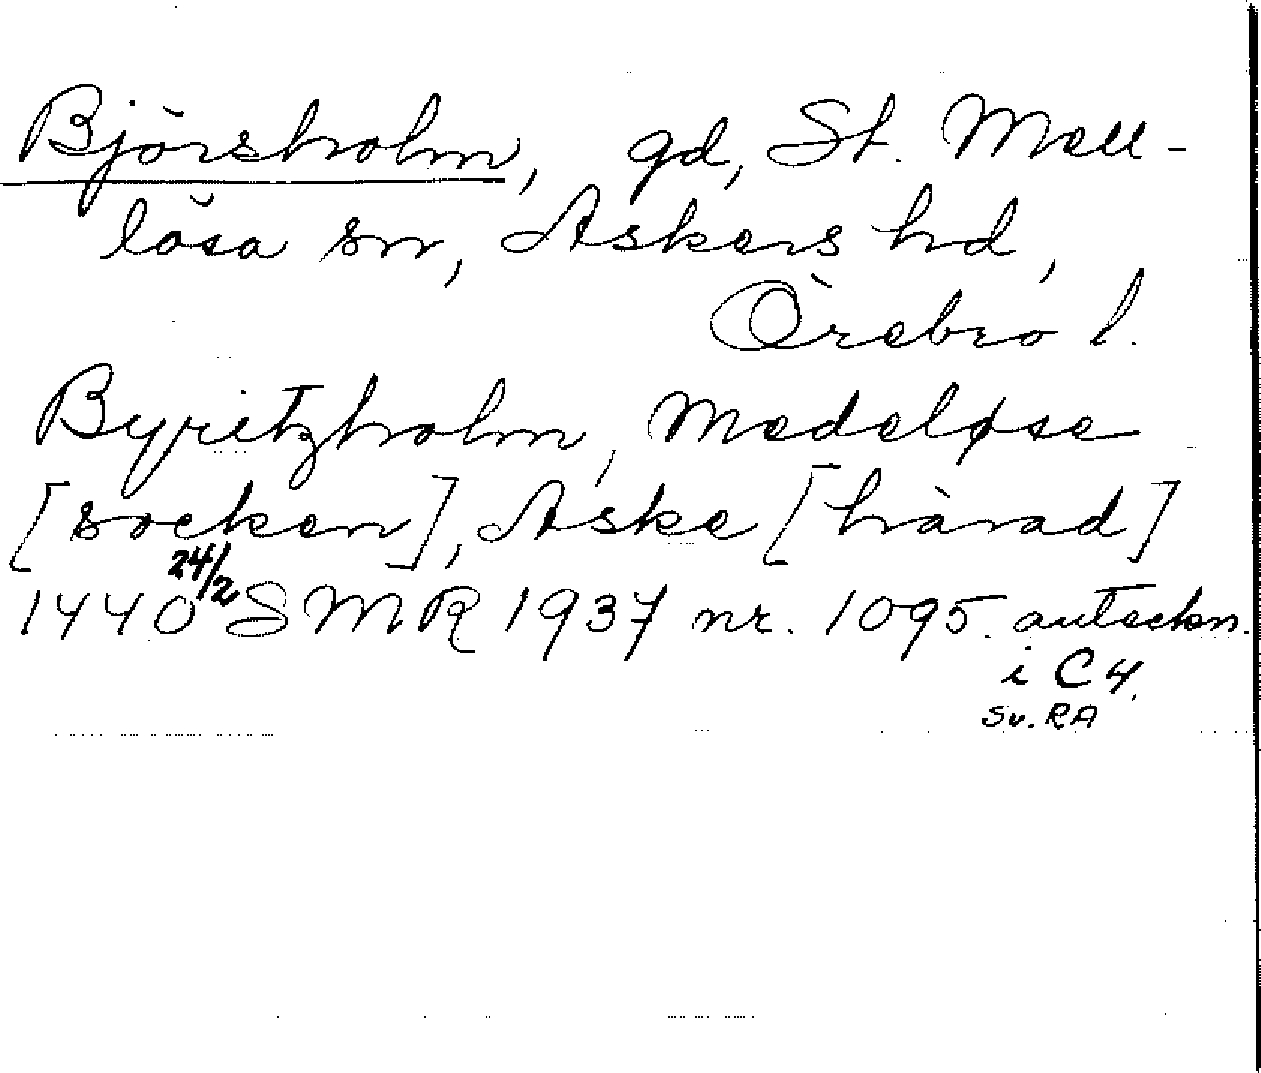 Björsholm, gd, St. Mell-
lösa sn, Askers hd,
Örebro l.
Byritzholm, Medeløse
[socken], Aske [härad]
1440 24/2 SMR 1937 nr. 1095. anteckn.
i C4.
Sv. RA